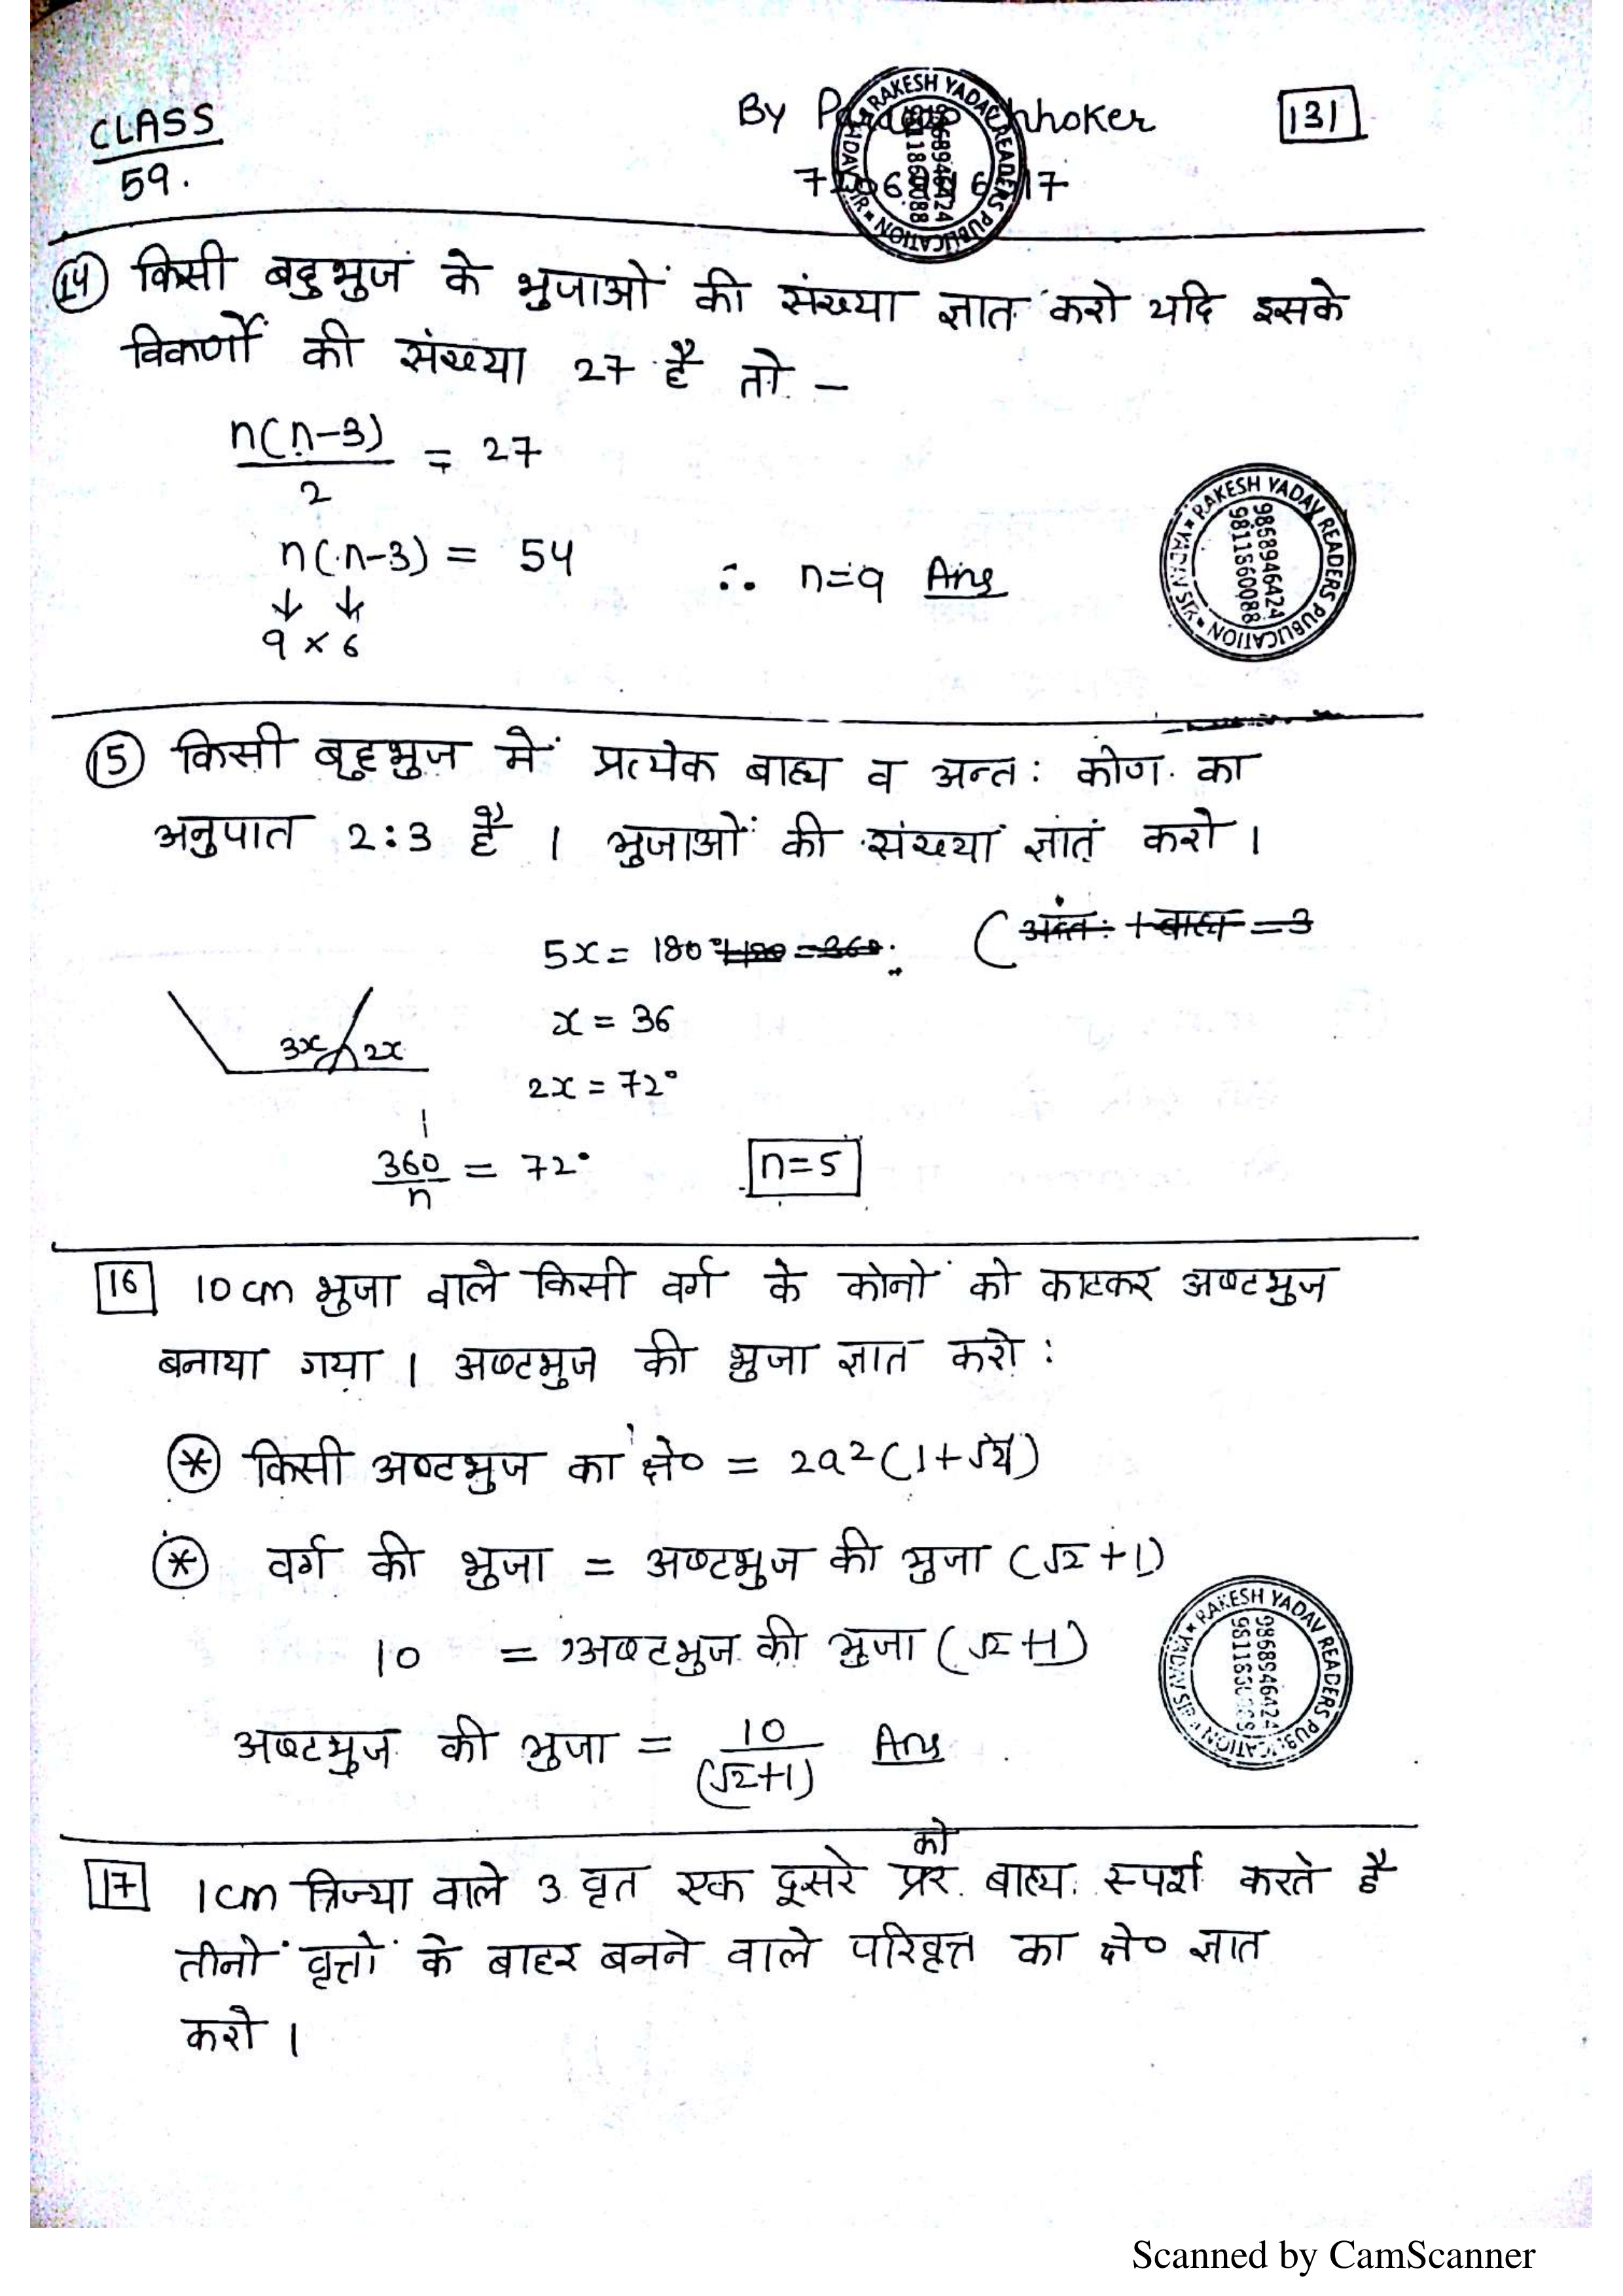 CLASS
59.
By
hhoker
131
RAKESH YADAV READERS PUBLICATION
9868946424
14 किसी बहुभुज के भुजाओं की संख्या ज्ञात करो यदि इसके
विकर्णों की संख्या 27 है तो -
n(n-3)/2 = 27
n(n-3) = 54 ∴ n=9 Ans
↓ ↓
9 × 6
RAKESH YADAV READERS PUBLICATION * YADAV SIR *
9868946424
9811860088
15 किसी बहुभुज में प्रत्येक बाह्य व अन्त: कोण का
अनुपात 2:3 है । भुजाओं की संख्या ज्ञात करो ।
5x = 180°
(अंत: + बाह्य = 3
x = 36
3x 2x
2x = 72°
360/n = 72° n=5
16 10 cm भुजा वाले किसी वर्ग के कोनों को काटकर अष्टभुज
बनाया गया । अष्टभुज की भुजा ज्ञात करो :
* किसी अष्टभुज का क्षे० = 2a²(1+√2)
* वर्ग की भुजा = अष्टभुज की भुजा (√2 +1)
10 = अष्टभुज की भुजा (√2 +1)
अष्टभुज की भुजा = 10/(√2+1) Ans
RAKESH YADAV READERS PUBLICATION * YADAV SIR *
9868946424
17 1cm त्रिज्या वाले 3 वृत एक दूसरे को बाह्य स्पर्श करते है
तीनों वृत्तों के बाहर बनने वाले परिवृत्त का क्षे० ज्ञात
करो ।
Scanned by CamScanner